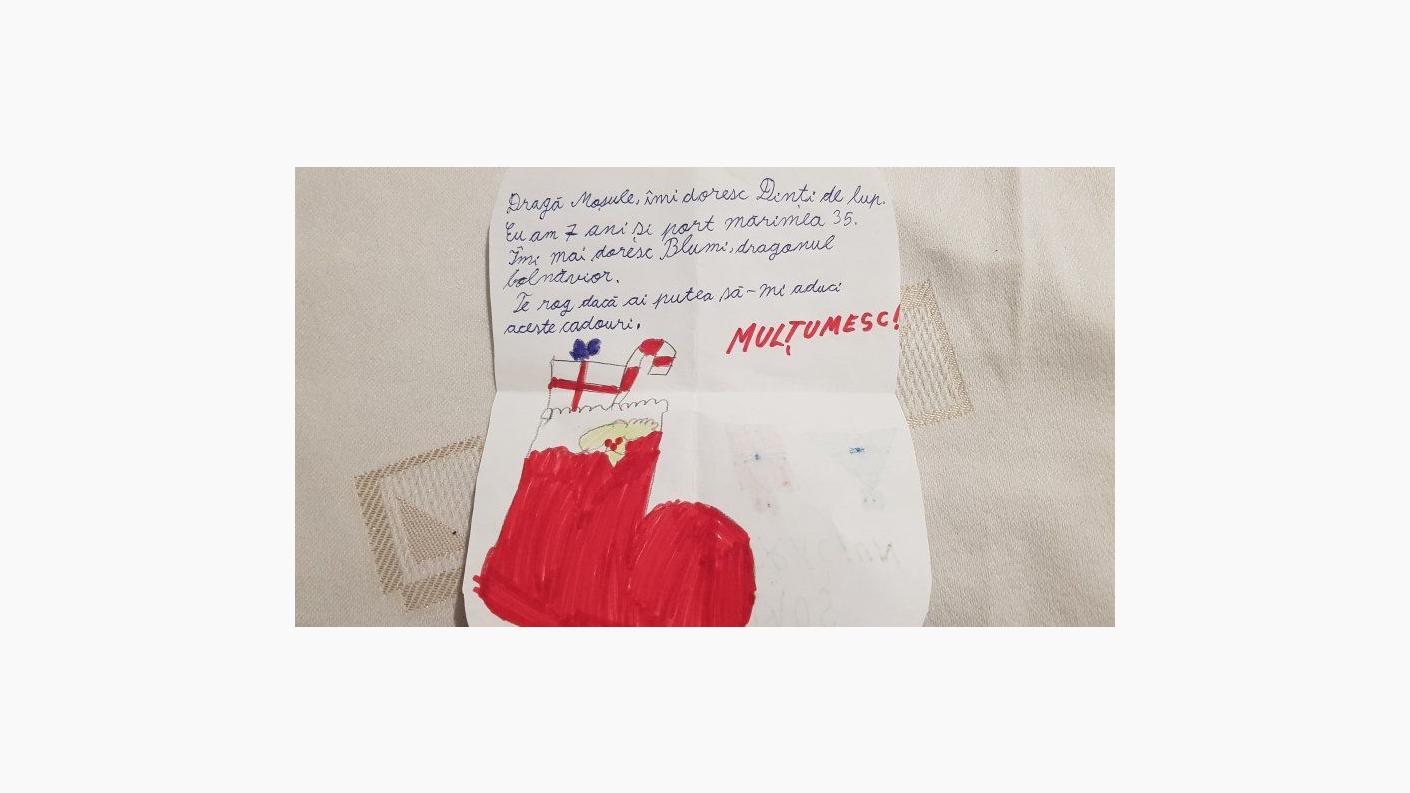 Dragă Moșule, îmi doresc Dinți de lup.
Eu am 7 ani și port mărimea 35.
Îmi mai doresc Blumi, dragonul
bolnăvior.
Te rog dacă ai putea să-mi aduci
aceste cadouri.
MULȚUMESC!